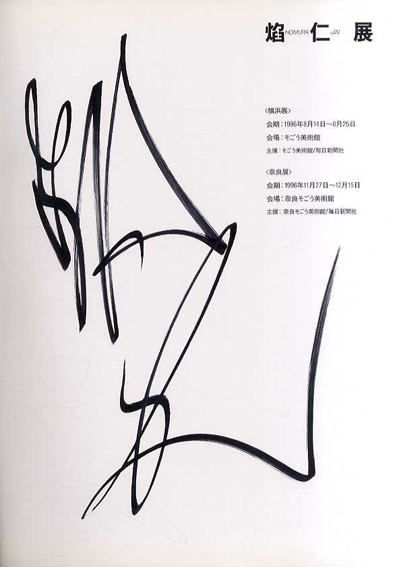 焔仁展
NOMURA JIN
〈横浜展〉
会期：1996年8月14日〜8月25日
会場：そごう美術館
主催：そごう美術館/毎日新聞社
〈奈良展〉
会期：1996年11月27日〜12月15日
会場：奈良そごう美術館
主催：奈良そごう美術館/毎日新聞社